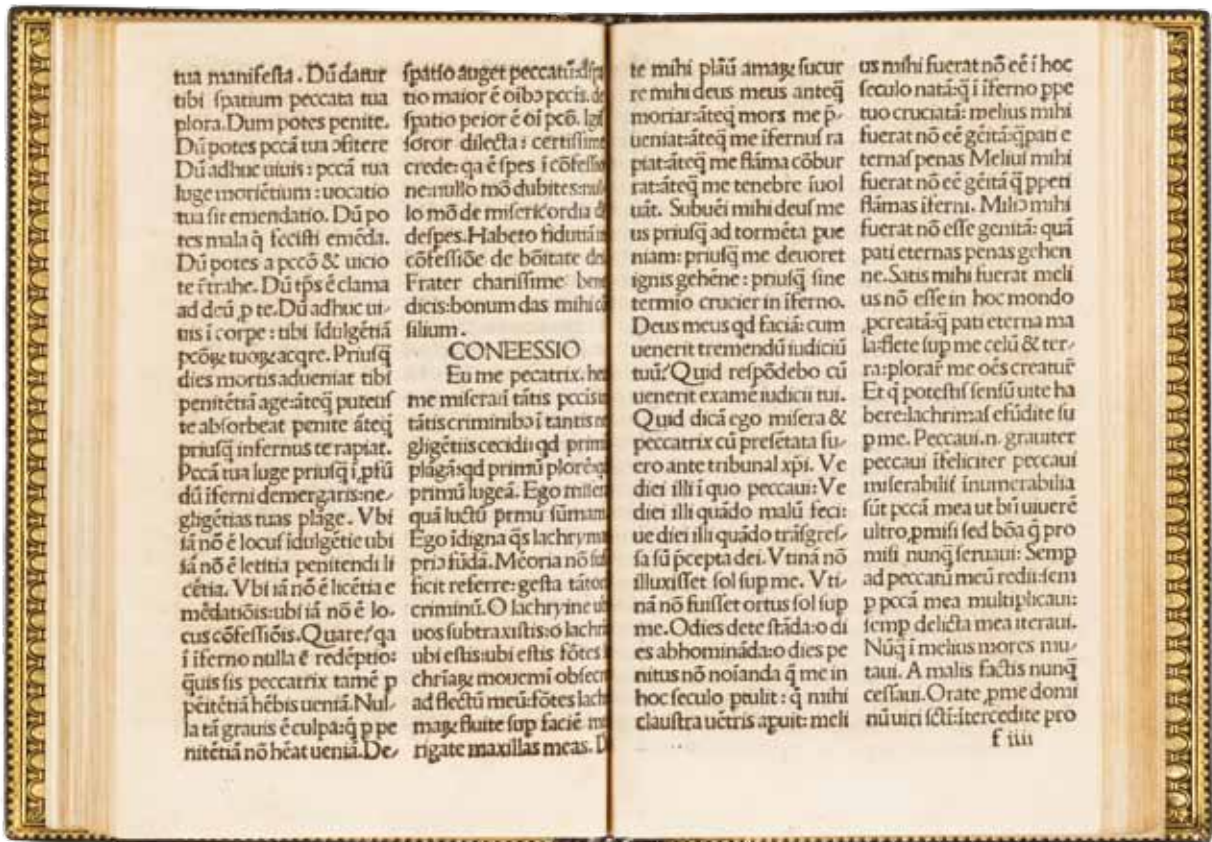 tua manifesta . Dũ datur
tibi spatium peccata tua
plora. Dum potes penite.
Dũ potes pccã tua ɔfitere
Dũ adhuc uiuis : pccã tua
luge moriẽtium : uocatio
tua sit emendatio. Dũ po
tes mala q̃ fecisti emẽda.
Dũ potes a pccõ & uicio
te r̃trahe. Dũ tp̃s ẽ clama
ad deũ ꝓ te. Dũ adhuc ui-
uis ĩ corpe : tibi ĩdulgẽtiã
pcõꝝ tuoꝝ acq̃re. Priusq̃
dies mortis adueniat tibi
penitẽtiã age:ãteq̃ puteus
te absorbeat penite ãteq̃
priusq̃ infernus te rapiat.
Pccã tua luge priusq̃ ĩ ꝓfũ
dũ ĩferni demergaris:ne-
gligẽtias tuas plãge. Vbi
iã nõ ẽ locus ĩdulgẽtie ubi
iã nõ ẽ letitia penitendi li
cẽtia. Vbi iã nõ ẽ licẽtia e
mẽdatiõis:ubi iã nõ ẽ lo-
cus cõfessiõis. Quare? qa
ĩ ĩferno nulla ẽ redẽptio:
q̃uis sis peccatrix tamẽ p
pẽitẽtiã hẽbis ueniã. Nul-
la tã grauis ẽ culpa:q̃ p pe
nitẽtiã nõ hẽat ueniã. De-
spatio auget peccatũ:
tio maior ẽ oĩbɔ pccis.
spatio peior ẽ oĩ pcõ.
soror dilecta : certissime
crede: qa ẽ spes ĩ cõfessio
ne:nullo mõ dubites:
lo mõ de misericordia
despes. Habeto fidutiã
cõfessiõe de bõitate dei
Frater charissime bene
dicis:bonum das mihi
silium .
CONEESSIO
Eu me pecatrix.
me misera:ĩ tãtis pccis:
tãtis criminibɔ ĩ tantis
gligẽtiis cecidi: qd primũ
plãgã:qd primũ plorẽ:
primũ lugeã. Ego
quã luctũ prmũ sũmam
Ego ĩdigna q̃s lachrymas
priɔ fũdã. Mẽoria nõ
ficit referre: gesta tãtorũ
criminũ. O lachryme
uos subtraxistis:o lachri
ubi estis:ubi estis fõtes
chriaꝝ mouemĩ obsecro
ad flectũ meũ:fõtes lachri
maꝝ fluite sup faciẽ
rigate maxillas meas.
te mihi plãũ amaꝝ sucur
re mihi deus meus anteq̃
moriar:ãteq̃ mors me p̃-
ueniat:ãteq̃ me ĩfernus ra
piat:ãteq̃ me flãma cõbur
rat:ãteq̃ me tenebre ĩuol
uãt. Subuẽi mihi deus me
us priusq̃ ad tormẽta pue
niam: priusq̃ me deuoret
ignis gehẽne : priusq̃ sine
termio crucier in ĩferno.
Deus meus qd faciã: cum
uenerit tremendũ iudiciũ
tuũ? Quid respõdebo cũ
uenerit examẽ iudicii tui.
Quid dicã ego misera &
peccatrix cũ presẽtata fu-
ero ante tribunal xp̃i. Ve
diei illi ĩ quo peccaui: Ve
diei illi quãdo malũ feci:
ue diei illi quãdo trãsgres-
sa sũ p̃cepta dei. Vtinã nõ
illuxisset sol sup me. Vti-
nã nõ fuisset ortus sol sup
me. Odies dete stãda:o di
es abhominãda:o dies pe
nitus nõ noĩanda q̃ me in
hoc seculo ptulit : q̃ mihi
claustra uẽtris apuit: meli
us mihi fuerat nõ eẽ ĩ hoc
seculo natã:q̃ ĩ ĩferno ppe
tuo cruciatã: melius mihi
fuerat nõ eẽ gẽitã:q̃ pati e
ternas penas Melius mihi
fuerat nõ eẽ gẽitã q̃ ppeti
flãmas ĩferni. Miliɔ mihi
fuerat nõ esse genitã: quã
pati eternas penas gehen
ne. Satis mihi fuerat meli
us nõ esse in hoc mondo
ꝓcreatã:q̃ pati eterna ma
la:flete sup me celũ & ter-
ra:plorar̃ me oẽs creatur̃
Et q̃ potestis sensũ uite ha
bere:lachrimas efũdite su
p me. Peccaui.n. grauiter
peccaui ĩfeliciter peccaui
miserabilis inumerabilia
sũt pccã mea ut bñ uiuerẽ
ultro ꝓmisi sed bõa q̃ pro
misi nunq̃ seruaui: Semp
ad peccatũ meũ redii:sem
p pccã mea multiplicaui:
semp delicta mea iteraui.
Nũq̃ ĩ melius mores mu-
taui. A malis factis nunq̃
cessaui. Orate ꝓ me domi
nũ uiri scti:ĩtercedite pro
f iiii